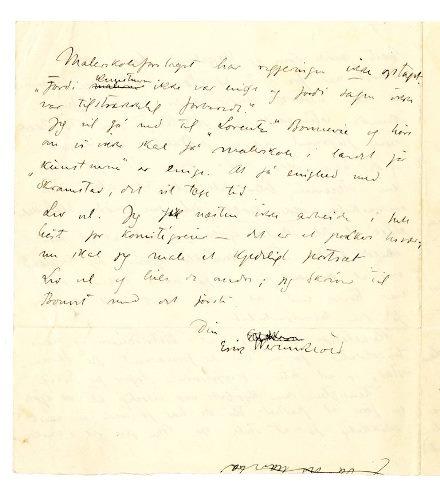 Maleskoleforslaget har regjeringen ikke optaget.
"Fordi kunstnerne ikke var enige og fordi sagen ikke
var tilstrækkelig forberedt."
Jeg vil gå ned til "Lorentz" og høre
om vi ikke skal få maleskole i landet før
"kunstnerne" er enige. At få enighed med
Skramstad, det vil tage tid
Lev vel. Jeg fik næsten ikke arbeide i hele
høst for komitégreier – det er et
nu skal jeg male et kjedeligt portræt
Lev vel og hils de andre; jeg skriver til
med det første
Din
Erik Werenskiold